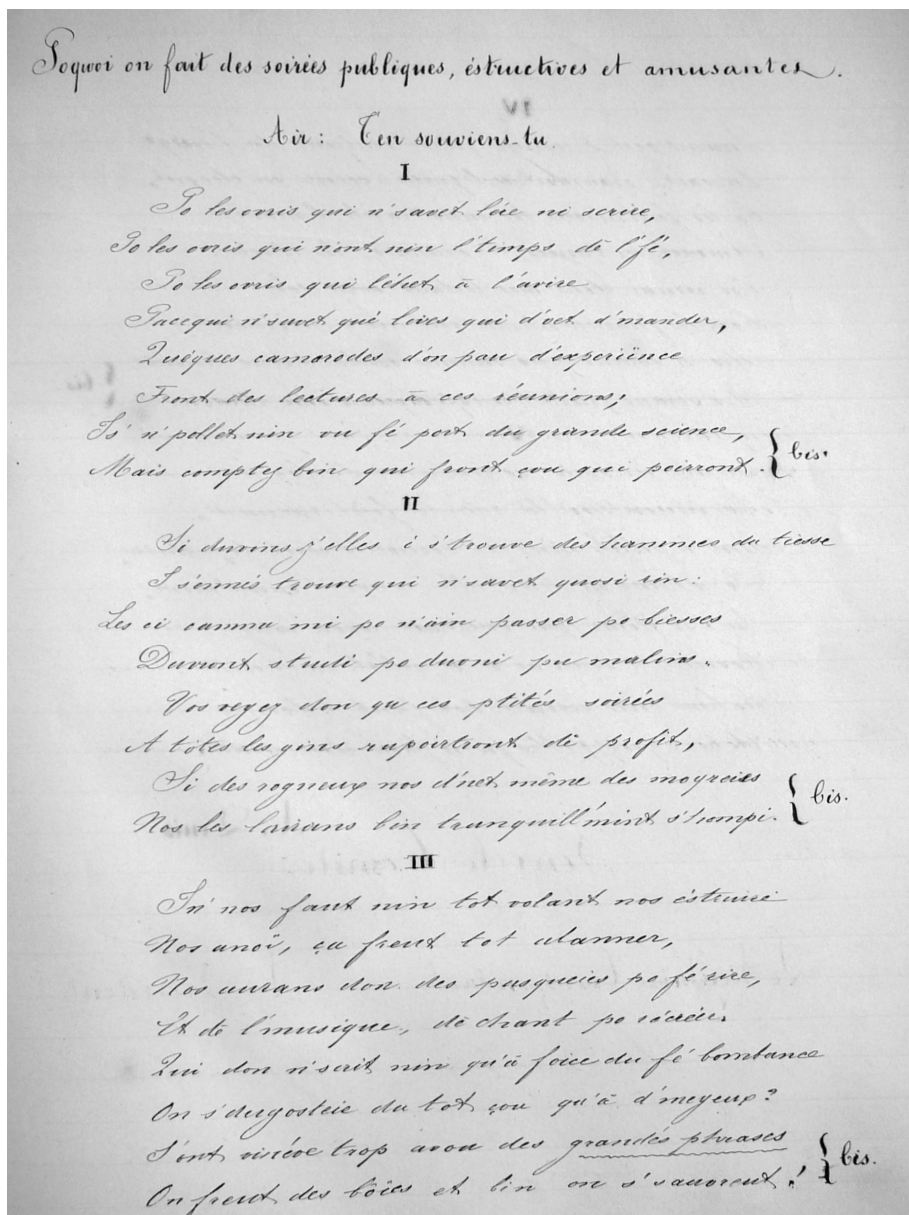 Poqwoi on fait des soirées publiques, éstructives et amusantes.
Air: T'en souviens-tu.
I
Po les ovris qui n'savet lére ni scrire,
Po les ovris qui n'ont nin l'timps dè l'fé,
Po les ovris qui léhet à l'avire
Pacequi n'savet qué lives qui d'vet d'mander,
Quéques camarades d'on pau d'expériince
Front des lectures à ces réunions;
Is' n'pollet nin vu fé part du grande science,
Mais comptez bin qui front çou qui poirront.
bis.
II
Si duvins z'elles i s'trouve des hammes du tiesse
I s'ennès trouve qui n'savet quasi rin:
Les ci camme mi po n'nin passer po biesses
Duvront studi po duvni pu malins.
Vos veyez don qu ces ptités soirées
A totes les gins rapoirtront dè profit,
Si des rogneux nos d'net même des moqreies
Nos les lairans bin tranquill'mint s'hompi.
bis.
III
In' nos faut nin tot volant nos éstruire
Nos anoï, ça freut tot alanner,
Nos aurans don des pasqueies po fé rire,
Et dè l'musique, dè chant po récréer.
Qui don n'sait nin qu'à foice du fé bombance
On s'dugosteie du tot çou qu'à d'meyeux?
S'ont riscéve trop avou des grandès phrases
On freut des bâïes et bin on s'sauvreut!
bis.